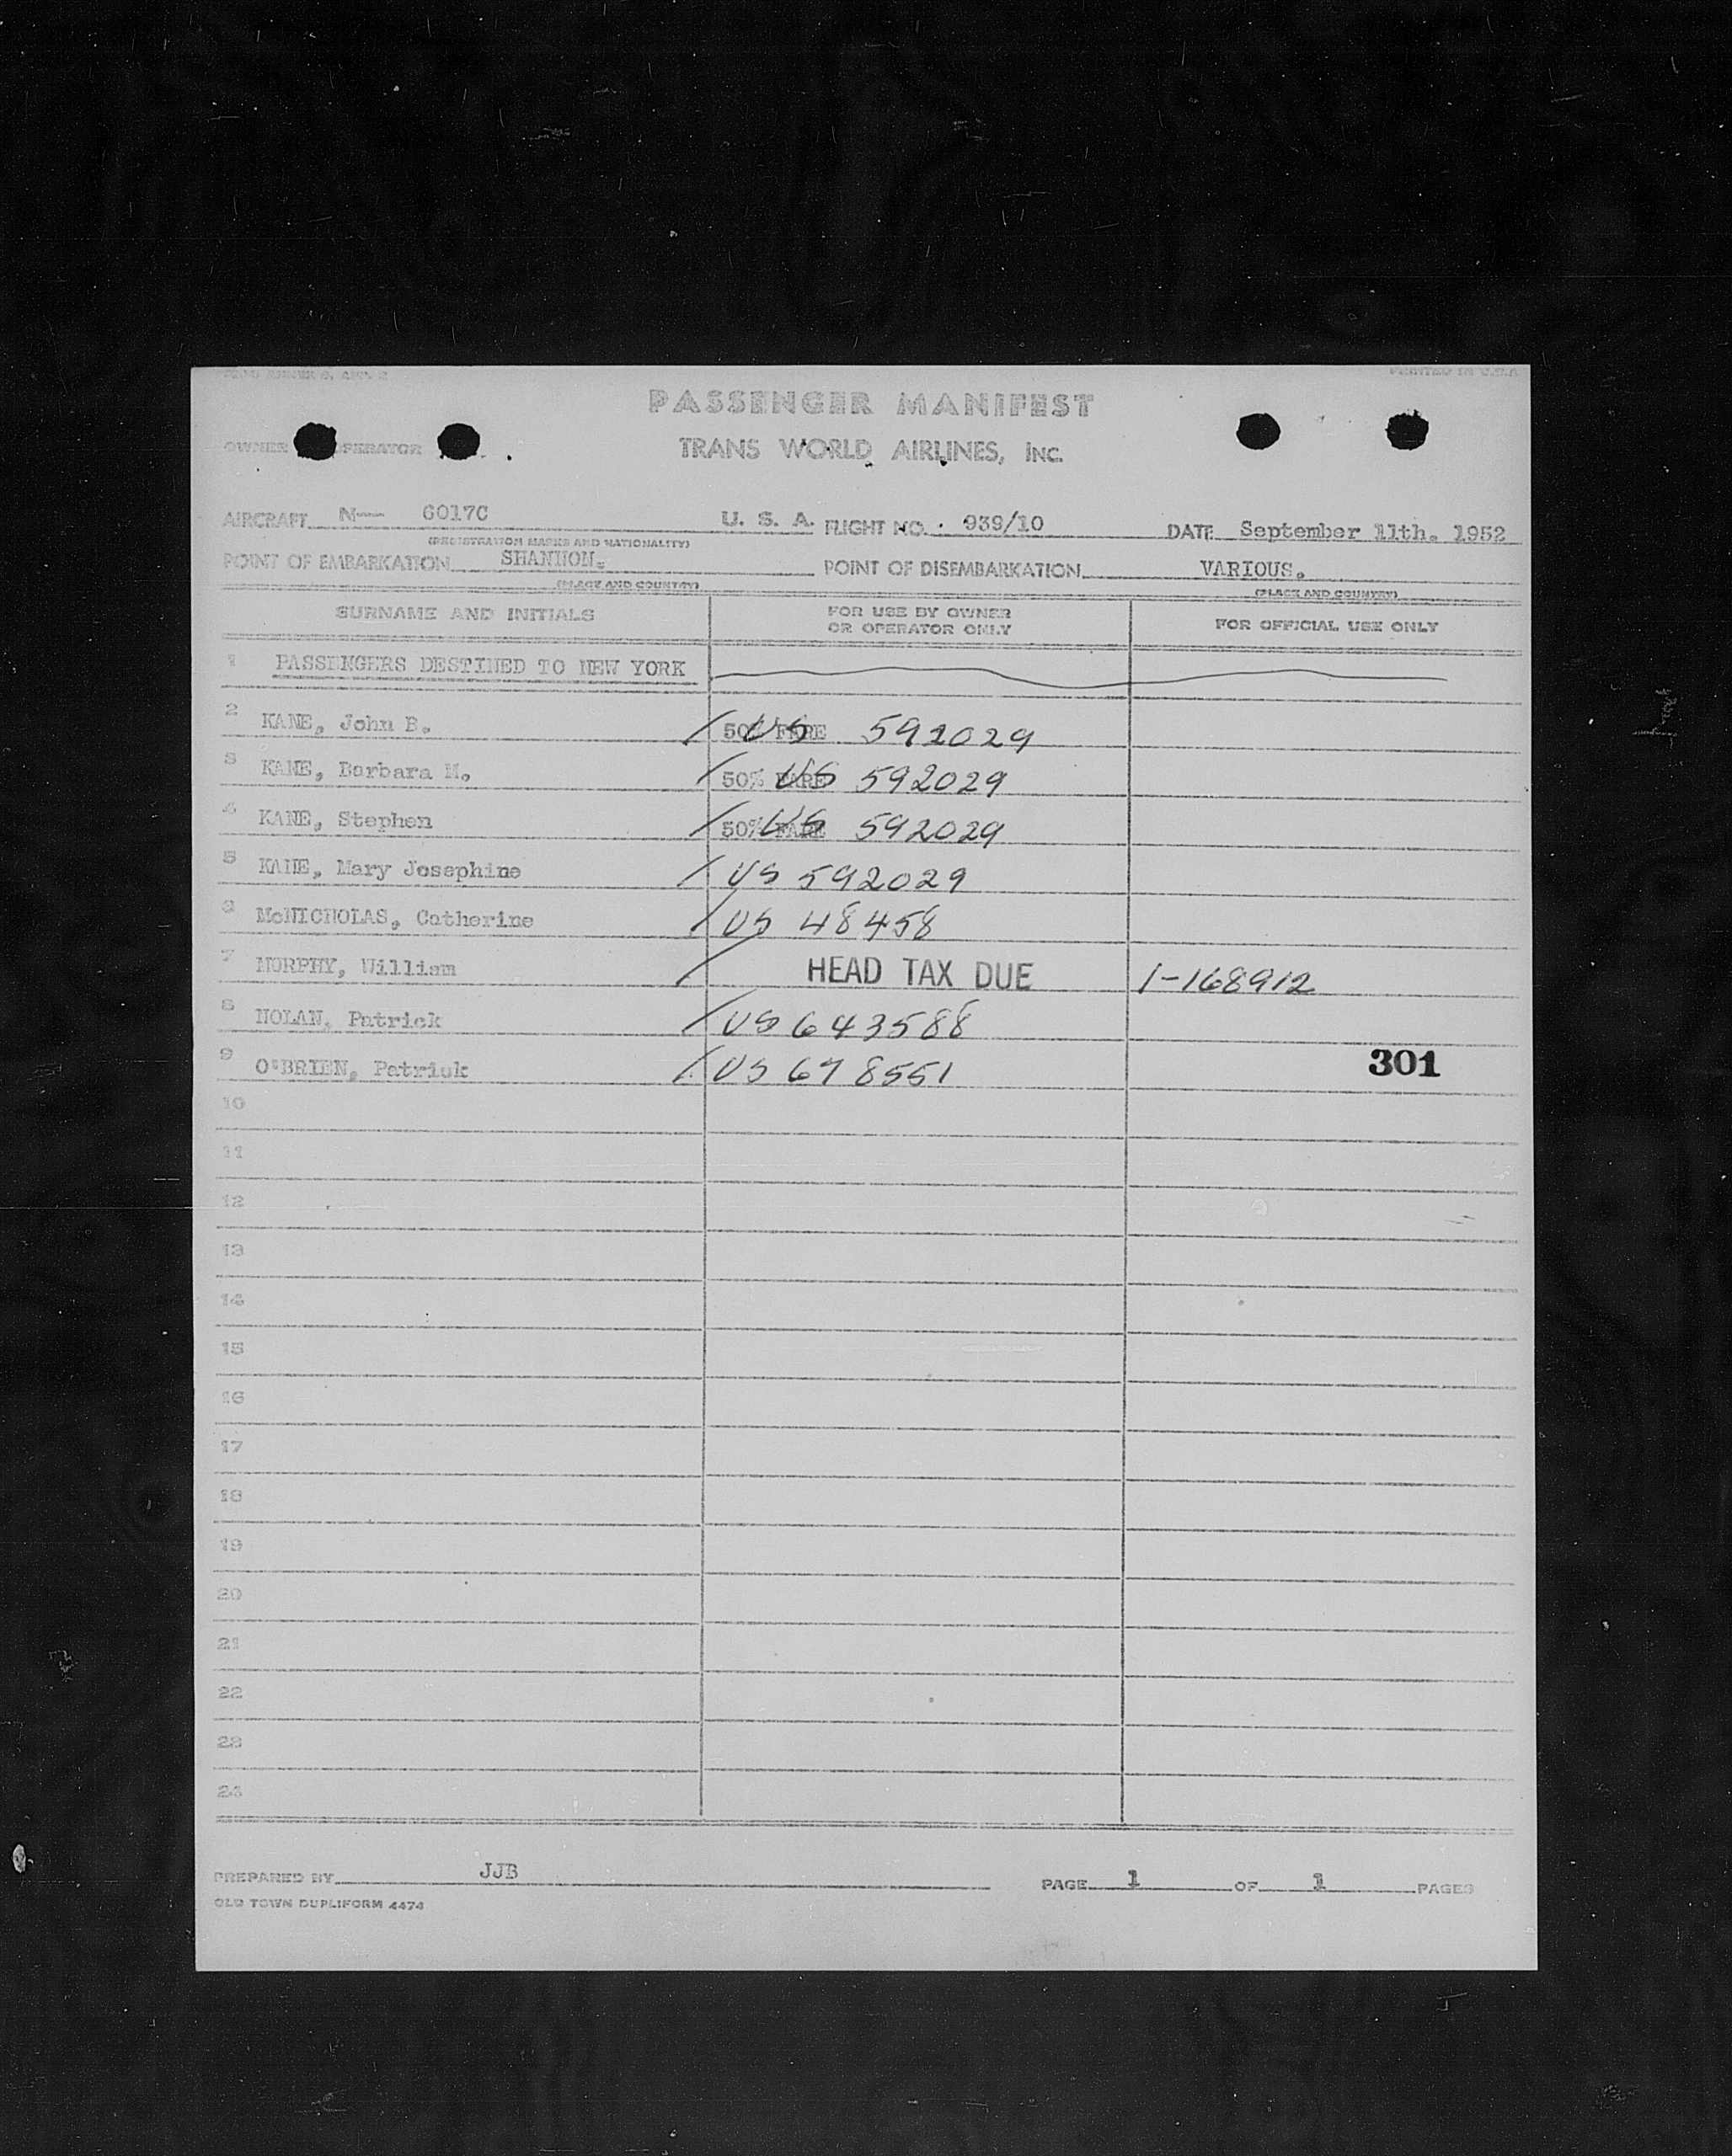 PRINTED IN U.S.A
PASSENGER MANIFEST
OWNER OPERATOR
TRANS WORLD AIRLINES, INC.
AIRCRAFT N— 6017C U. S. A. FLIGHT NO. 939/10 DATE September 11th. 1952
(REGISTRATION MARKS AND NATIONALITY)
POINT OF EMBARKATION SHANNON. POINT OF DISEMBARKATION VARIOUS.
(PLACE AND COUNTRY) (PLACE AND COUNTRY)
SURNAME AND INITIALS FOR USE BY OWNER OR OPERATOR ONLY FOR OFFICIAL USE ONLY
1 PASSENGERS DESTINED TO NEW YORK
2 KANE, John B. / 50% FARE US 592029
3 KANE, Barbara M. / 50% FARE US 592029
4 KANE, Stephen / 50% FARE US 592029
5 KANE, Mary Josephine / US 592029
6 McNICHOLAS, Catherine / US 48458
7 MURPHY, William / HEAD TAX DUE 1-168912
8 NOLAN, Patrick / US 643588
9 O'BRIEN, Patrick / US 678551 301
10
11
12
13
14
15
16
17
18
19
20
21
22
23
24
PREPARED BY JJB PAGE 1 OF 1 PAGES
OLD TOWN DUPLIFORM 4474